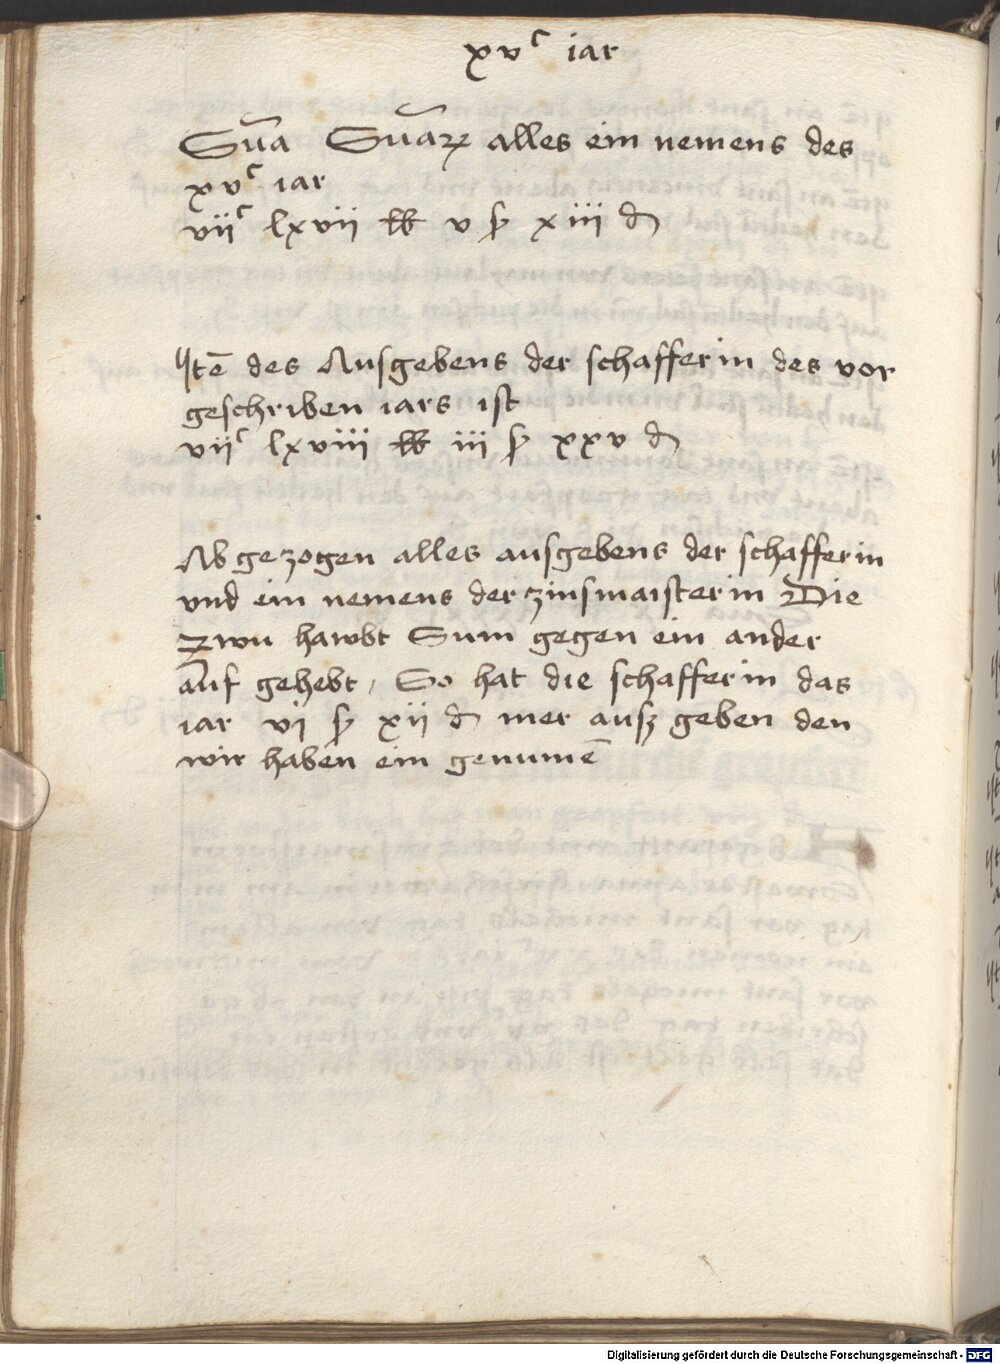 xvᶜ iar
Su̅a Su̅aꝝ alles ein nemens des
xvᶜ iar
viiᶜ lxvii ℔ v ß xiii ₰
Ite̅ des Ausgebens der schafferin des vor
geschriben iars ist
viiᶜ lxviii ℔ iii ß xxv ₰
Ab gezogen alles ausgebens der schafferin
vnd ein nemens der zinsmaisterin Die
zwu hawbt Sum gegen ein ander
auf gehebt / So hat die schafferin das
iar vj ß xii ₰ mer ausz geben den
wir haben ein genume̅
Digitalisierung gefördert durch die Deutsche Forschungsgemeinschaft - DFG